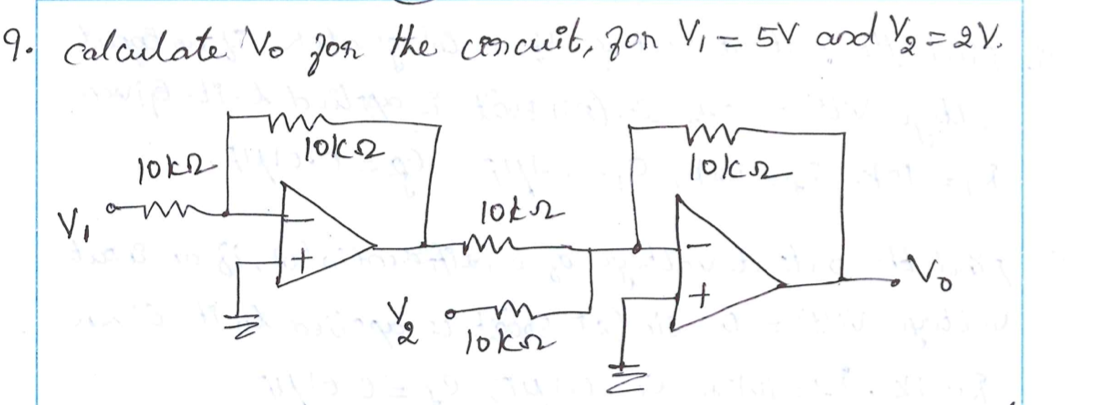 9. calculate Vo for the circuit, for V₁ = 5V and V₂ = 2V.
10kΩ
10kΩ
10kΩ
10kΩ
V₁
−
+
10kΩ
−
+
Vo
V₂